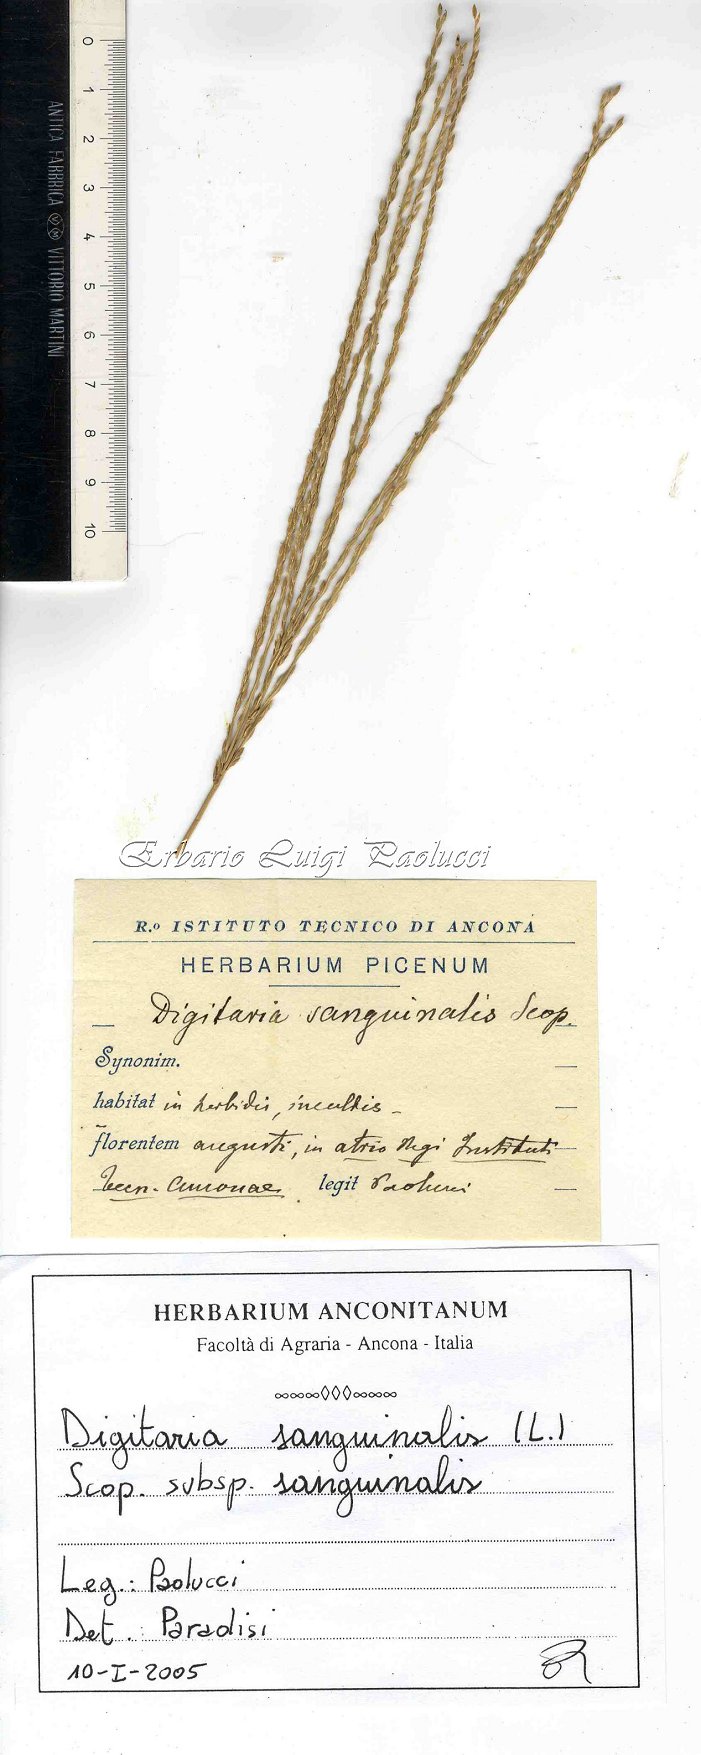 0
1
2
3
4
5
6
7
8
9
10
ANTICA FABBRICA VM VITTORIO MARTINI
Erbario Luigi Paolucci
R.o ISTITUTO TECNICO DI ANCONA
HERBARIUM PICENUM
Digitaria sanguinalis Scop.
Synonim.
habitat in herbidis, incultis
florentem augusti, in atrio Regi Instituti
Tecn. Anconae. legit Paolucci
HERBARIUM ANCONITANUM
Facoltà di Agraria - Ancona - Italia
Digitaria sanguinalis (L.)
Scop. subsp. sanguinalis
Leg.: Paolucci
Det.: Paradisi
10-I-2005